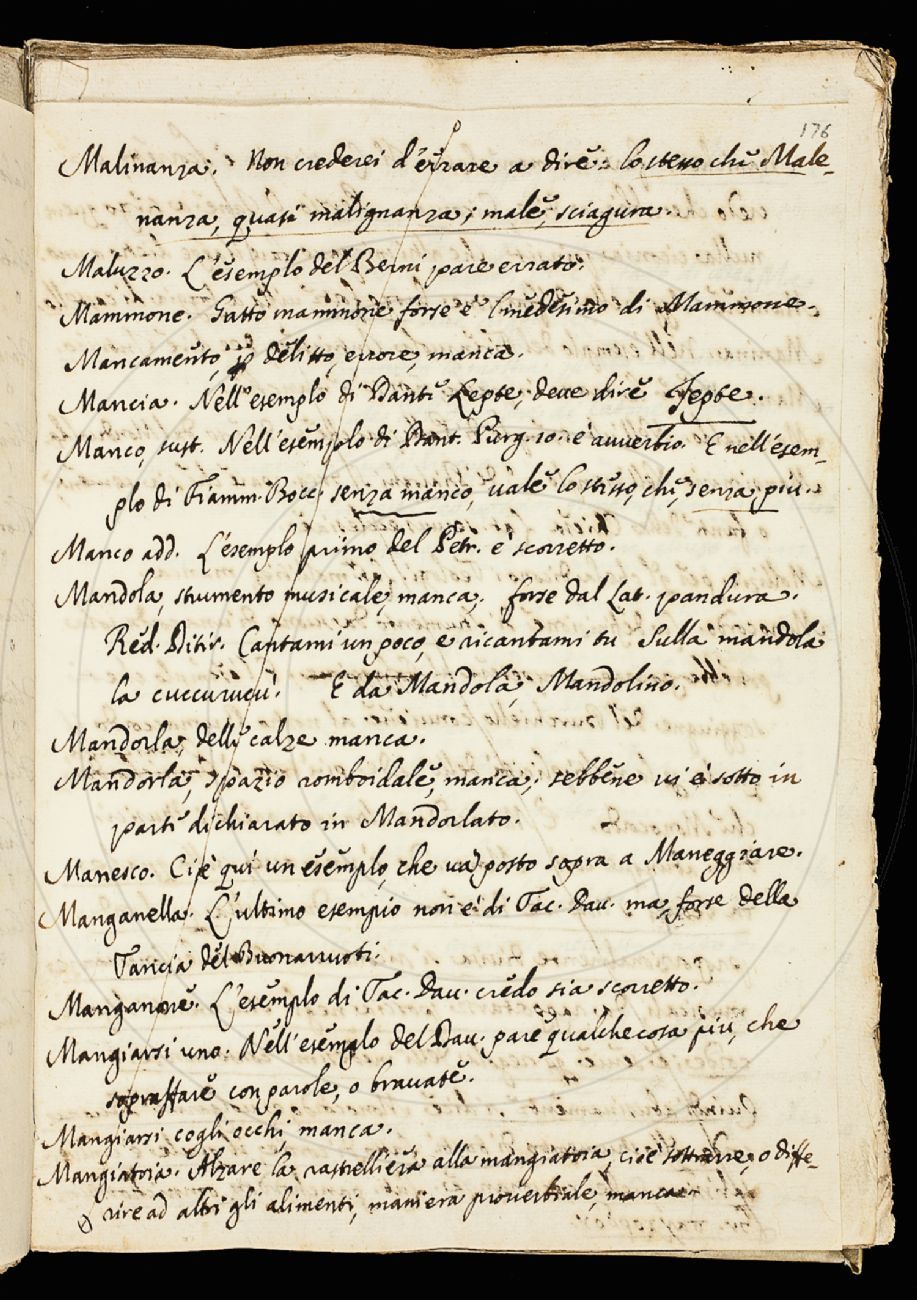 176
Malinanza. Non crederei d'errare a dire: lo stesso che Male-
nanza, quasi malignanza; male, sciagura.
Maluzzo. L'esemplo del Berni pare errato.
Mammone. Gatto mammone forse è l'medesimo di Mammone.
Mancamento, p delitto, errore, manca.
Mancia. Nell'esemplo di Dante Lepte, deve dire Jepte.
Manco, sust. Nell'esemplo di Dant. Purg. 10. è avverbio. E nell'esem-
plo di Fiamm. Bocc. senza manco, vale lo stesso, che, senza più.
Manco add. L'esemplo primo del Petr. è scorretto.
Mandola, strumento musicale, manca; forse dal Lat. pandura.
Red. Ditir. Cantami un poco, e ricantami tu Sulla mandola
la cuccurucù. E da Mandola, Mandolino.
Mandorla, delle calze manca.
Mandorla, spazio romboidale, manca; sebbene vi è sotto in
parte dichiarato in Mandorlato.
Manesco. Ci è qui un esemplo, che va posto sopra a Maneggiare.
Manganella. L'ultimo esempio non è di Tac. Dav. ma, forse della
Tancia del Buonarruoti.
Manganare. L'esemplo di Tac. Dav. credo sia scorretto.
Mangiarsi uno. Nell'esemplo del Dav. pare qualche cosa più, che
sopraffare con parole, o bravate.
Mangiarsi cogli occhi, manca.
Mangiatoia. Alzare la rastelliera alla mangiatoia, cioè sottrarre, o diffe-
rire ad altri gli alimenti, maniera proverbiale, manca.